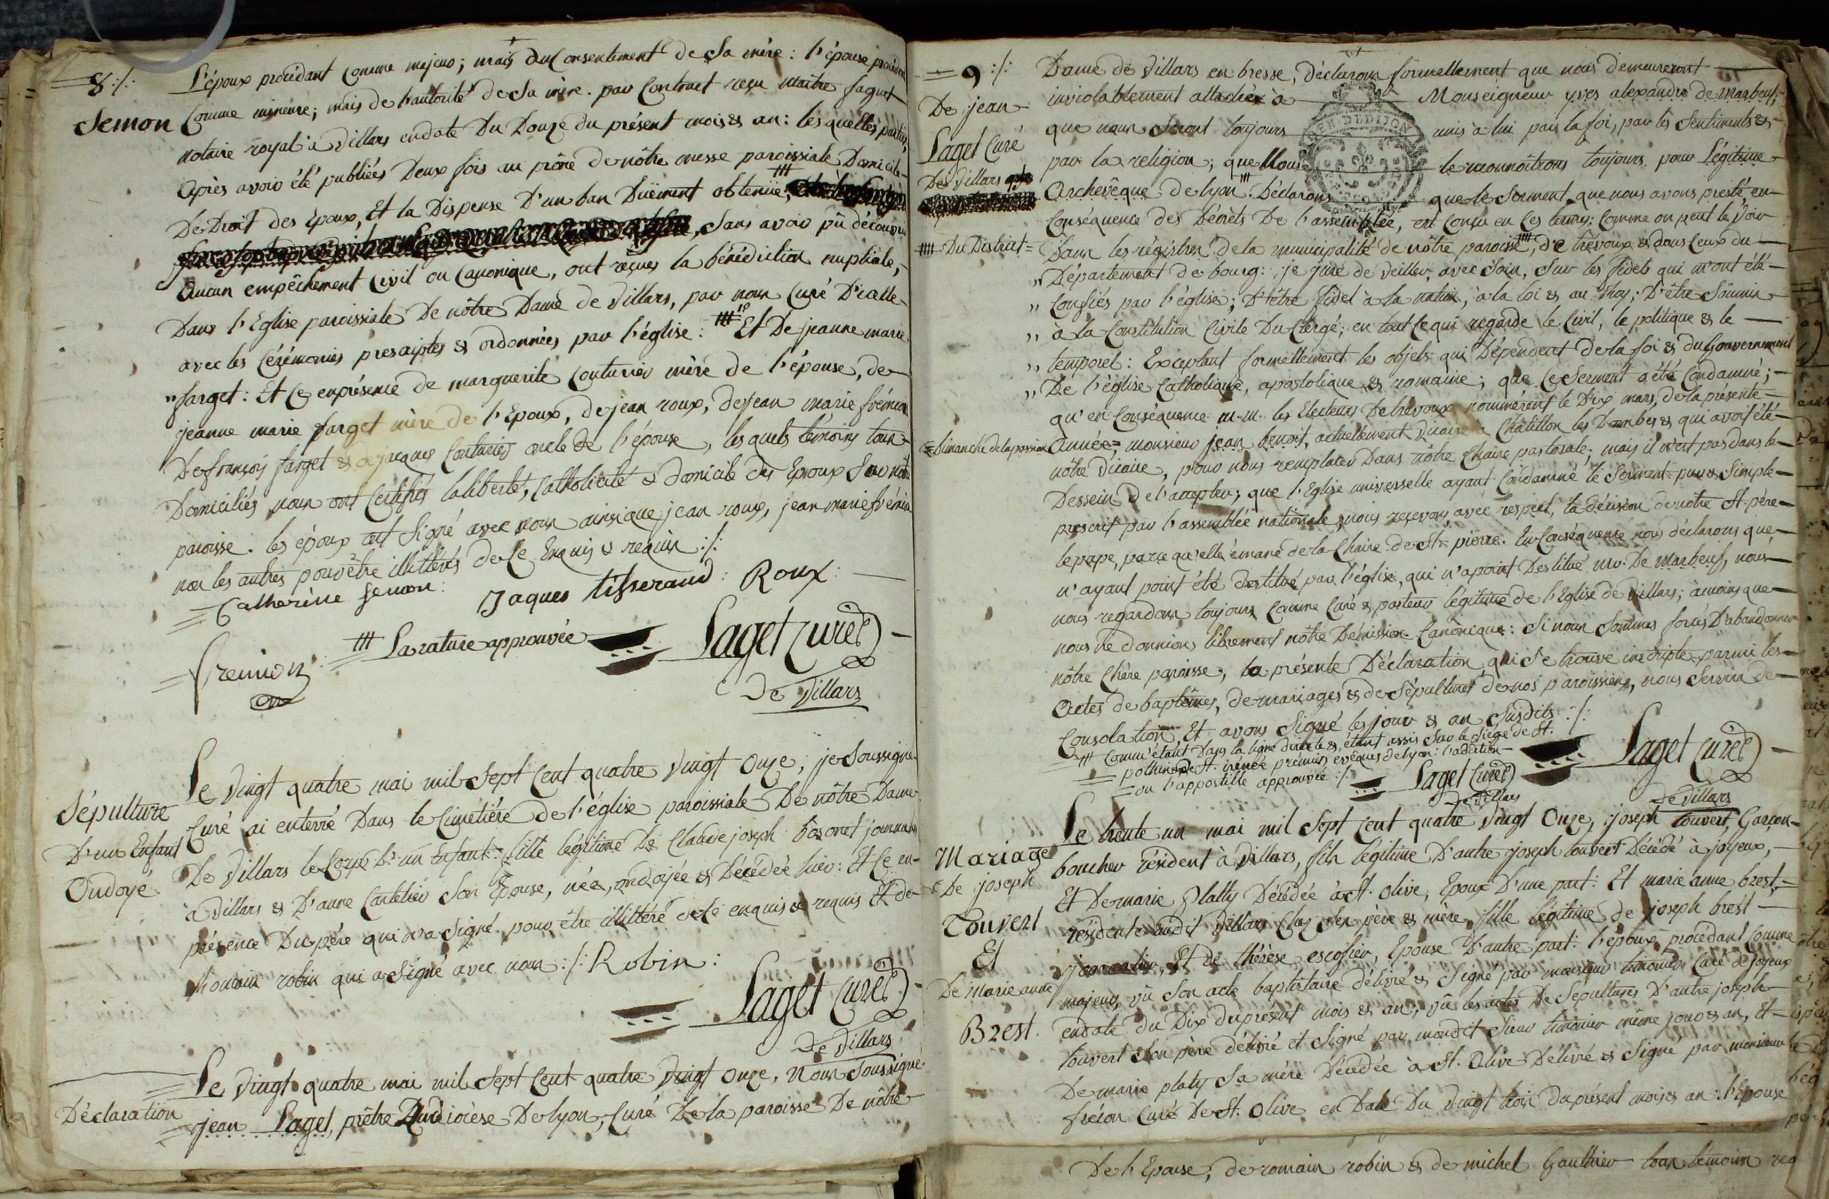 8 :/:
Semon
L'époux procédant comme majeur; mais du consentement de sa mère: l'épouse procédant
comme mineure; mais de l'autorité de sa mère. par contract reçu maitre faguet
notaire royal à villars en date du Douze du présent mois & an: lesquelles parties
après avoir été publiées Deux fois au prône de nôtre messe paroissiale Domicile
De Droit des époux, Et la Dispense D'un ban Duëment obtenüe,
sans avoir pû découvrir
Aucun empêchement Civil ou Canonique, ont reçues la bénédiction nuptiale,
Dans l'Eglise paroissiale De nôtre Dame de villars, par nous Curé D'icelle
avec les Cérémonies prescriptes & ordonnées par l'église: Et De jeanne marie
farget: Et ce en présence de marguerite Couturier mère de l'épouse, de
jeanne marie farget mère de l'Epoux, de jean roux, de jean marie frémion
De françois farget & de jacques Couturier oncle de l'épouse, lesquels témoins tous
Domiciliés nous ont Certifiés la liberté, Catholicité & domicile des Epoux sur nôtre
paroisse. les époux ont Signé avec nous ainsi que jean roux, jean marie frémion
non les autres pour être illittérés de ce Enquis & requis :/:
Catherine Semon: Jaques tisserand: Roux:
fremion
La rature approuvée Laget Curé
De Villars
Sépulture
D'un Enfant
Ondoyé
Le vingt quatre mai mil sept Cent quatre vingt Onze; je Soussigné
Curé ai enterré Dans le Cimétière de l'église paroissiale De nôtre Dame
De villars le Corps D'un Enfant: fille légitime de Claude joseph journalier
à villars & D'anne son Epouse, née, ondoyée & Décédée hier: Et Ce en
présence Du père qui n'a signé pour être illittéré de ce enquis & requis Et de
romain robin qui a signé avec nous :/: Robin:
Laget Curé
De Villars
Déclaration
Le vingt quatre mai mil sept Cent quatre vingt Onze, Nous Soussigné
jean Laget, prêtre Du Diocèse De lyon, Curé De la paroisse De nôtre
9 :/:
De jean
Laget Curé
De villars
Du District=
Dimanche de la passion
Dame de villars en bresse, Déclarons formellement que nous demeurerons
inviolablement attaché à Monseigneur yves alexandre de marbeuf;
que nous serons toujours unis à lui par la foi, par les sentiments &
par la religion; que Nous le reconnoitrons toujours pour Légitime
Archevêque de lyon. Déclarons que le Serment que nous avons presté en
Conséquence des Décrets De l'assemblée, est Conçu en Ces termes: Comme on peut le voir
Dans les régistres de la municipalité de nôtre paroisse, de trévoux & dans Ceux du
" Département de bourg: je jure de veiller avec soin, sur les fidels qui m'ont été
" Confiés par l'église; D'être fidel à la nation, à la loi & au Roy; D'être Soumis
" à la Constitution Civile Du Clergé; en tout Ce qui regarde le Civil, le politique & le
" temporel: Exceptant formellement les objets qui Dépendent de la foi & du gouvernement
" De l'église Catholique, apostolique & romaine; que Ce Serment a été Condamné;
qu'en Conséquence m.m. les Electeurs De trévoux nommèrent le Dix mars, de la présente
Année = monsieur jean benoit, actuellement vicaire à Châtillon les Dombes & qui avoit été
nôtre vicaire, pour nous remplacer Dans nôtre Chaire pastorale; mais il n'est pas dans le
Dessein De l'accepter; que l'Eglise universelle ayant Condamné le Serment pur & Simple
prescrit par l'assemblée nationale, nous reçevons avec respect, la décision de nôtre St. père
le pape, parce qu'elle émane de la Chaire de St. pierre. En Conséquence nous déclarons que,
n'ayant point été destitué par l'église, qui n'a point Destitué mr. De Marbeuf, nous
nous regardons toujours Comme Curé & pasteur légitime de l'Eglise de villars; à moins que
nous ne donnions librement nôtre Démission Canonique: Si nous Sommes forcés D'abandonner
nôtre Chère paroisse, la présente Déclaration qui se trouve inscripte parmi les
Actes de baptêmes, de mariages & de Sépultures de nos paroissiens, nous servira de
Consolation, Et avons Signé les jour & an Susdits :/:
Comm'étant Dans la ligne directe &, étant assis sur le Siège de St.
pothin & de St. irenée premiers evêques de lyon: l'addition
ou l'appostille approuvée :/: Laget Curé
De Villars
Laget Curé
De Villars
Mariage
De joseph
Touvert
Et
De Marie anne
Brest.
Le trente un mai mil sept Cent quatre vingt Onze, joseph touvert, Garçon
boucher résident à villars, fils légitime D'autre joseph touvert Décédé à joyeux,
Et De marie Platty Décédée à St. Olive, Epoux D'une part: Et marie anne brest,
résidente audit villars Chez ses père & mère, fille légitime de joseph brest
Et de thérèse escofier, Epouse D'autre part: l'époux procédant Comme
majeur, vû son acte baptistaire délivré & Signé par monsieur Curé de joyeux
en date du Dix du présent mois & an, vû les actes De Sépultures D'autre joseph
touvert Son père délivré et Signé par mondit Sieur même jour & an, Et
De marie platy Sa mère Décédée à St. Olive Délivré & Signé par monsieur
frécon Curé De St. Olive en Date Du vingt trois du présent mois & an: l'Epouse
De l'Epouse; de romain robin & de michel Gauthier tous témoins